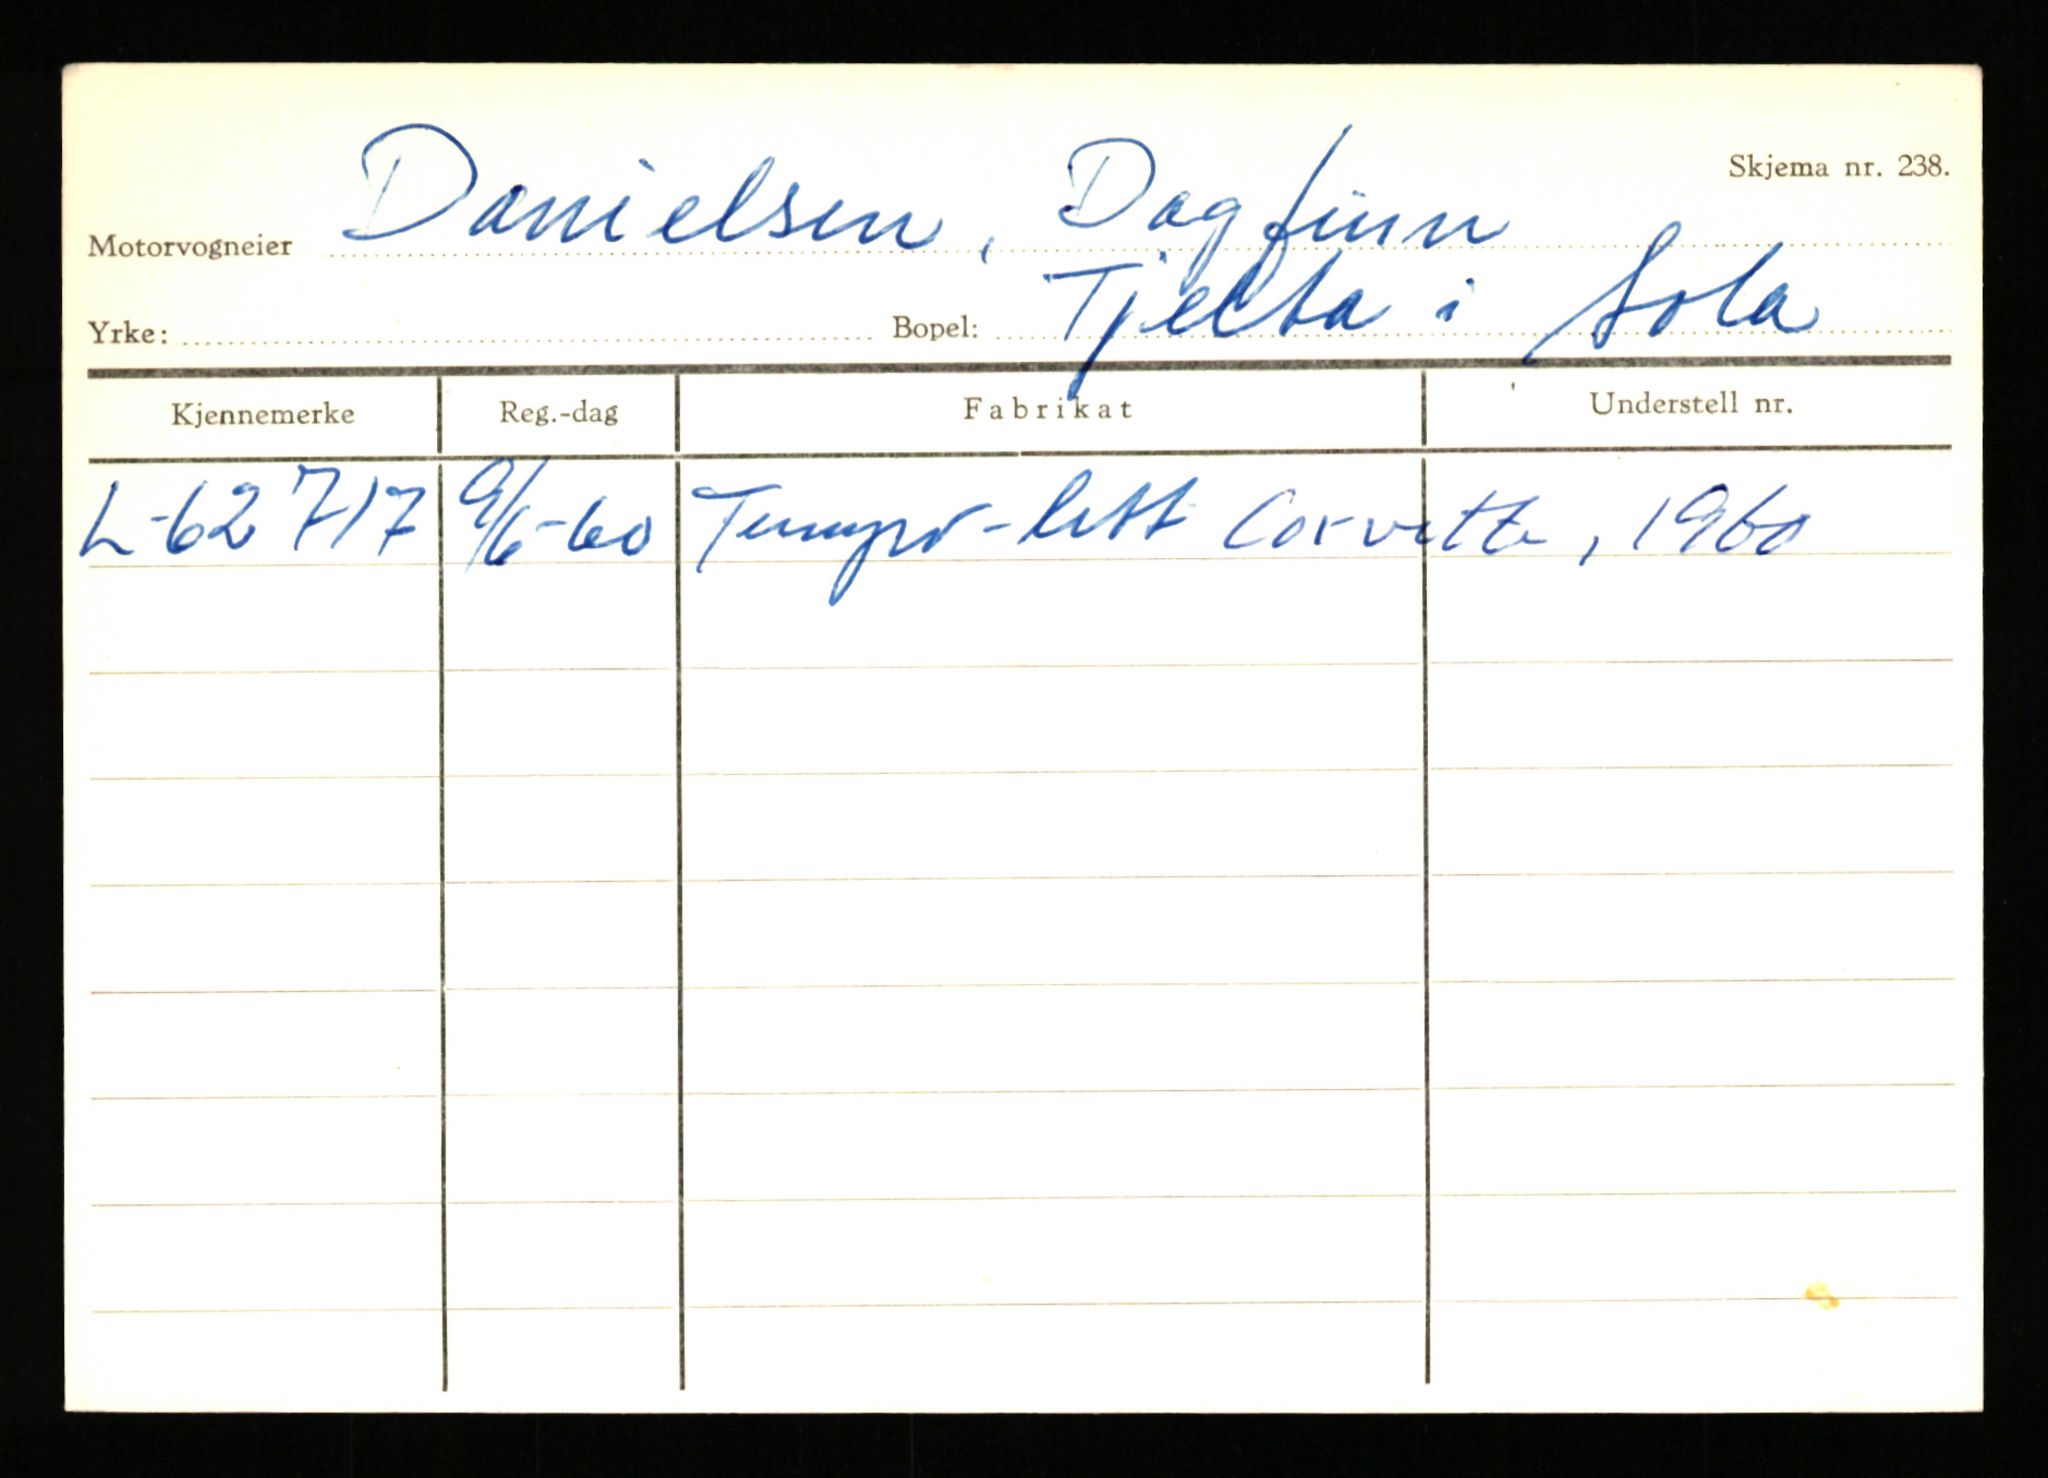 Skjema nr. 238.
Motorvogneier Danielsen, Dagfinn
Yrke: Bopel: Tjelta i Sola
Kjennemerke Reg.-dag Fabrikat Understell nr.
L-62717 9/6-60 Tempo-lett Corvette, 1960